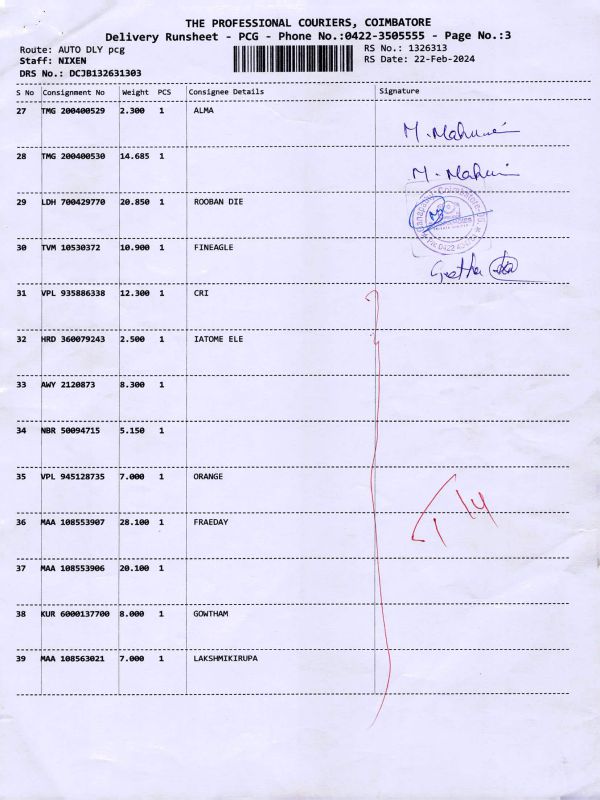 THE PROFESSIONAL COURIERS, COIMBATORE
Delivery Runsheet - PCG - Phone No.:0422-3505555 - Page No.:3
Route: AUTO DLY pcg RS No.: 1326313
Staff: NIXEN RS Date: 22-Feb-2024
DRS No.: DCJB132631303
S No Consignment No Weight PCS Consignee Details Signature
27 TMG 200400529 2.300 1 ALMA
28 TMG 200400530 14.685 1
29 LDH 700429770 20.850 1 ROOBAN DIE
30 TVM 10530372 10.900 1 FINEAGLE
Geetha
31 VPL 935886338 12.300 1 CRI
32 HRD 360079243 2.500 1 IATOME ELE
33 AWY 2120873 8.300 1
34 NBR 50094715 5.150 1
35 VPL 945128735 7.000 1 ORANGE
36 MAA 108553907 28.100 1 FRAEDAY
37 MAA 108553906 20.100 1
38 KUR 6000137700 8.000 1 GOWTHAM
39 MAA 108563021 7.000 1 LAKSHMIKIRUPA